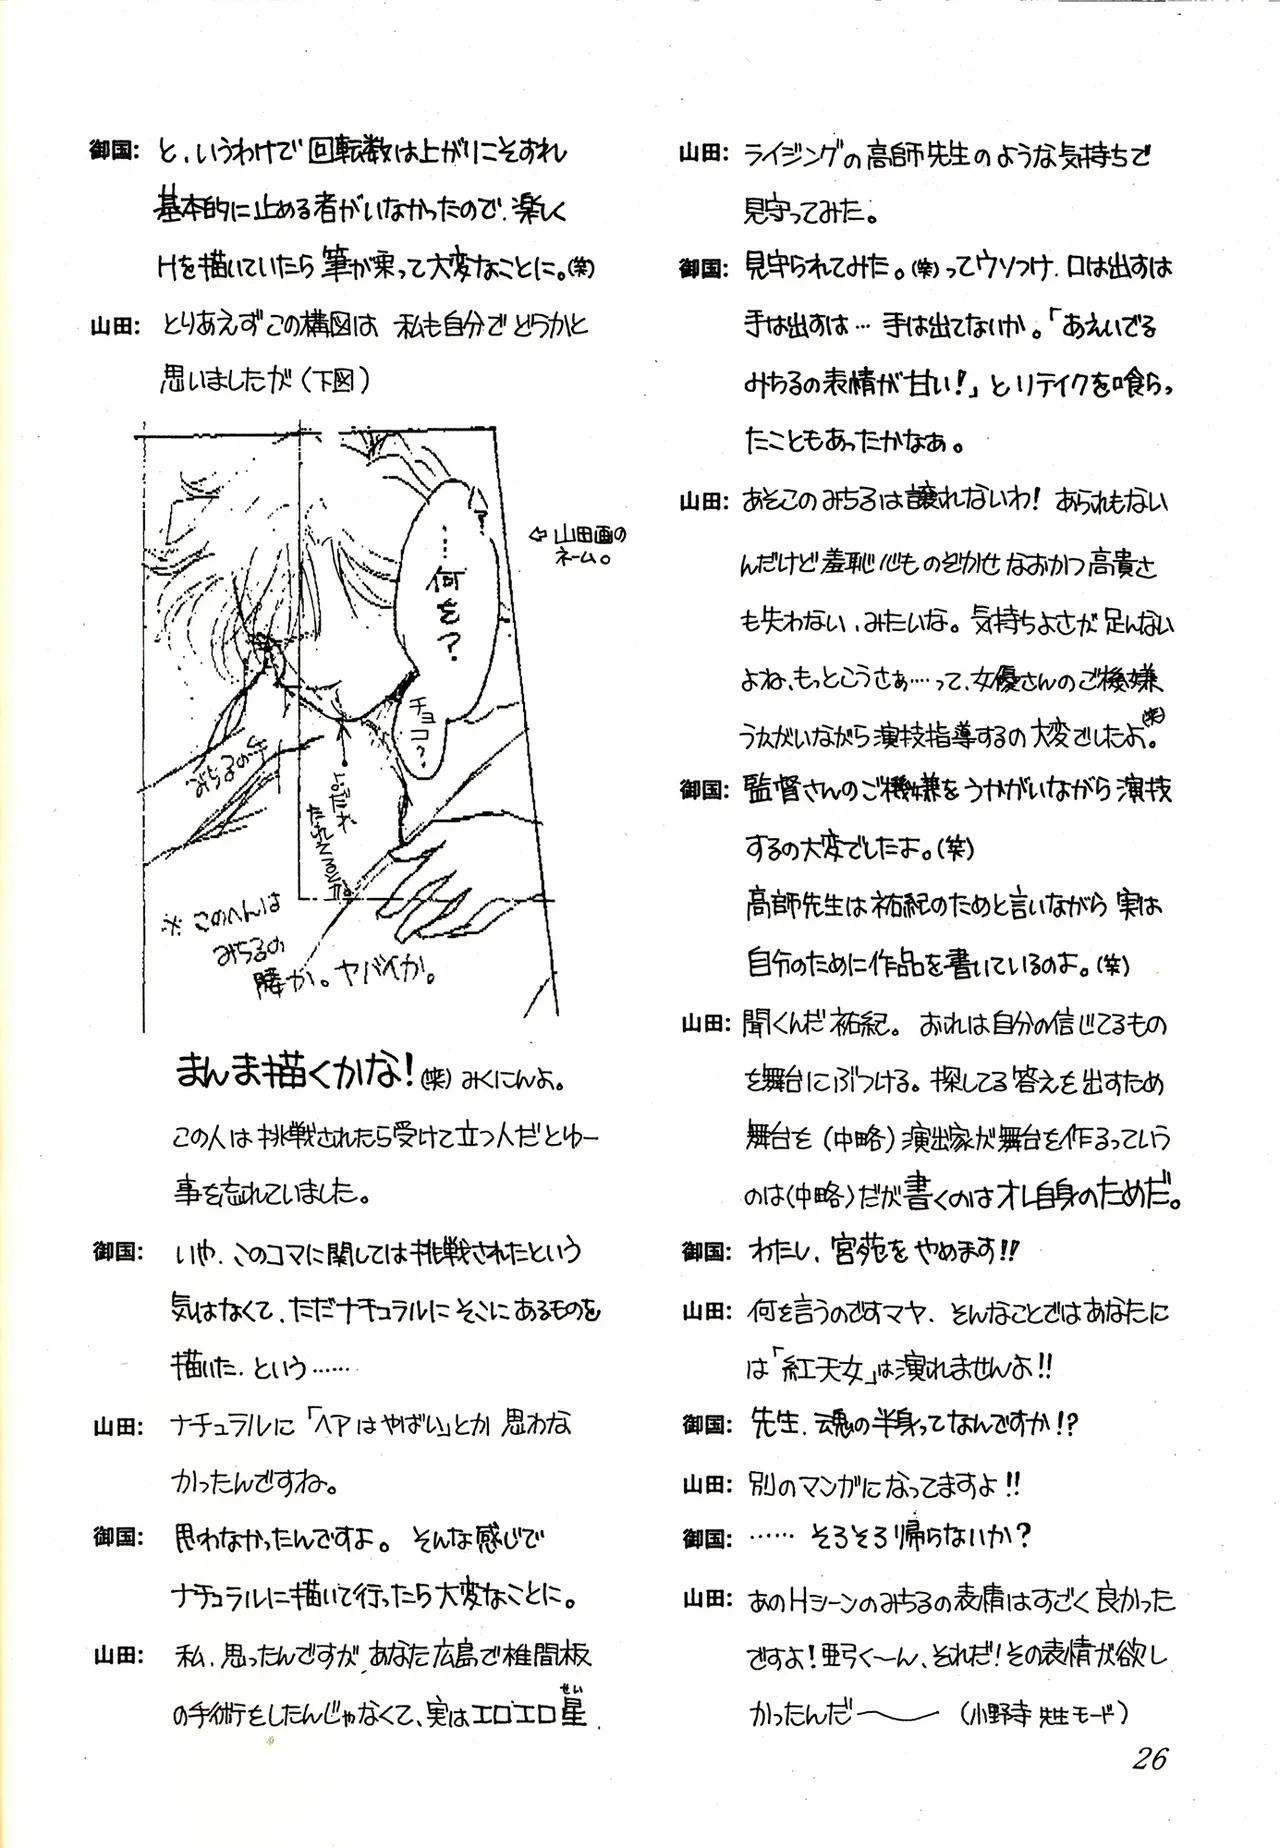 御国: と、いうわけで回転数は上がりこそすれ
基本的に止める者がいなかったので、楽しく
Hを描いていたら筆が乗って大変なことに。(笑)
山田: とりあえずこの構図は 私も自分でどうかと
思いましたが(下図)
…何を?
チョコ?
⇦山田画の
ネーム。
みちるの
よだれ
たれてるぞ
※このへんは
みちるの
腰か。ヤバイか。
まんま描くかな!(笑)みくにんよ。
この人は挑戦されたら受けて立つ人だとゆー
事を忘れていました。
御国: いや、このコマに関しては挑戦されたという
気はなくて、ただナチュラルにそこにあるものを
描いた、という……
山田: ナチュラルに「ヘアはやばい」とか 思わな
かったんですね。
御国: 思わなかったんですよ。そんな感じで
ナチュラルに描いて行ったら大変なことに。
山田: 私、思ったんですが、あなた広島で椎間板
の手術をしたんじゃなくて、実はエロエロ星
せい
山田: ライジングの高師先生のような気持ちで
見守ってみた。
御国: 見守られてみた。(笑)ってウソつけ、口は出すは
手は出すは… 手は出てないか。「あえいでる
みちるの表情が甘い!」とリテイクを喰らっ
たこともあったかなぁ。
山田: あそこのみちるは譲れないわ! あられもない
んだけど羞恥心ものぞかせなおかつ高貴さ
も失わない、みたいな。気持ちよさが足んない
よね、もっとこうさぁ…って、女優さんのご機嫌
うかがいながら演技指導するの大変でしたよ。(笑)
御国: 監督さんのご機嫌をうかがいながら演技
するの大変でしたよ。(笑)
高師先生は祐紀のためと言いながら 実は
自分のために作品を書いているのよ。(笑)
山田: 聞くんだ祐紀。おれは自分の信じてるもの
を舞台にぶつける。探してる答えを出すため
舞台を(中略)演出家が舞台を作るっていう
のは(中略)だが書くのはオレ自身のためだ。
御国: わたし、宮苑をやめます!!
山田: 何を言うのですマヤ、そんなことではあなたに
は「紅天女」は演れませんよ!!
御国: 先生、魂の半身ってなんですか!?
山田: 別のマンガになってますよ!!
御国: …… そろそろ帰らないか?
山田: あのHシーンのみちるの表情はすごく良かった
ですよ!亜弓く〜ん、それだ!その表情が欲し
かったんだ〜 (小野寺先生モード)
26